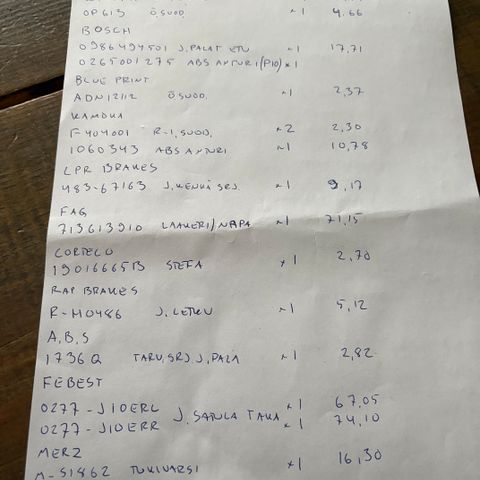 OP613 Ö,SUOD. ×1 4,66
BOSCH
0986494501 J.PALAT ETU ×1 17,71
0265001275 ABS ANTURI(P10) ×1
BLUE PRINT
ADN12112 ÖSUOD. ×1 2,37
KAMOKA
F404001 R-I,SUOD, ×2 2,30
1060343 ABS ANTURI ×1 10,78
LPR BRAKES
J.KENKÄ SRJ. ×1 9,17
FAG
713613910 LAAKERI/NAPA ×1 71,15
CORTECO
19016665B STEFA ×1 2,70
RAP BRAKES
R-H0486 J.LETKU ×1 5,12
A,B,S
1736Q TARV,SRJ J,PALA ×1 2,82
FEBEST
0277-J10ERL ×1 67,05
0277-J10ERR J.SATULA TAKA ×1 74,10
MERZ
M-S1862 TUKIVARSI ×1 16,30